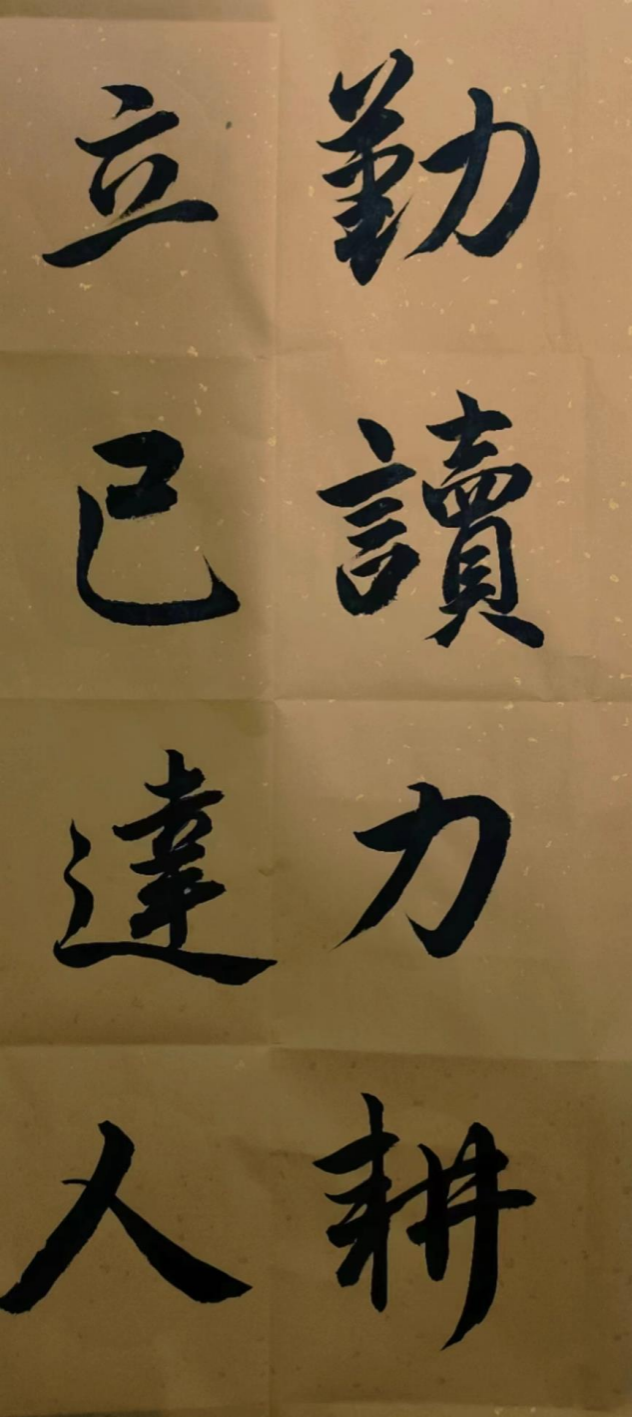 勤讀力耕
立己達人